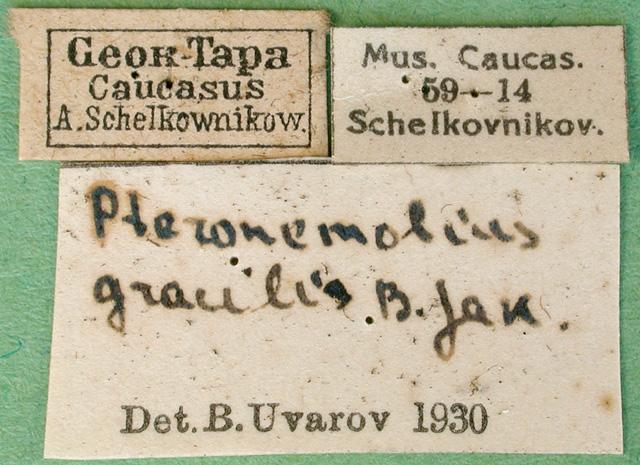 Геок-Тара
Caucasus
A. Schelkownikow.
Mus. Caucas.
59-14
Schelkovnikov.
Pteronemobius
gracilis B. Jak.
Det. B. Uvarov 1930